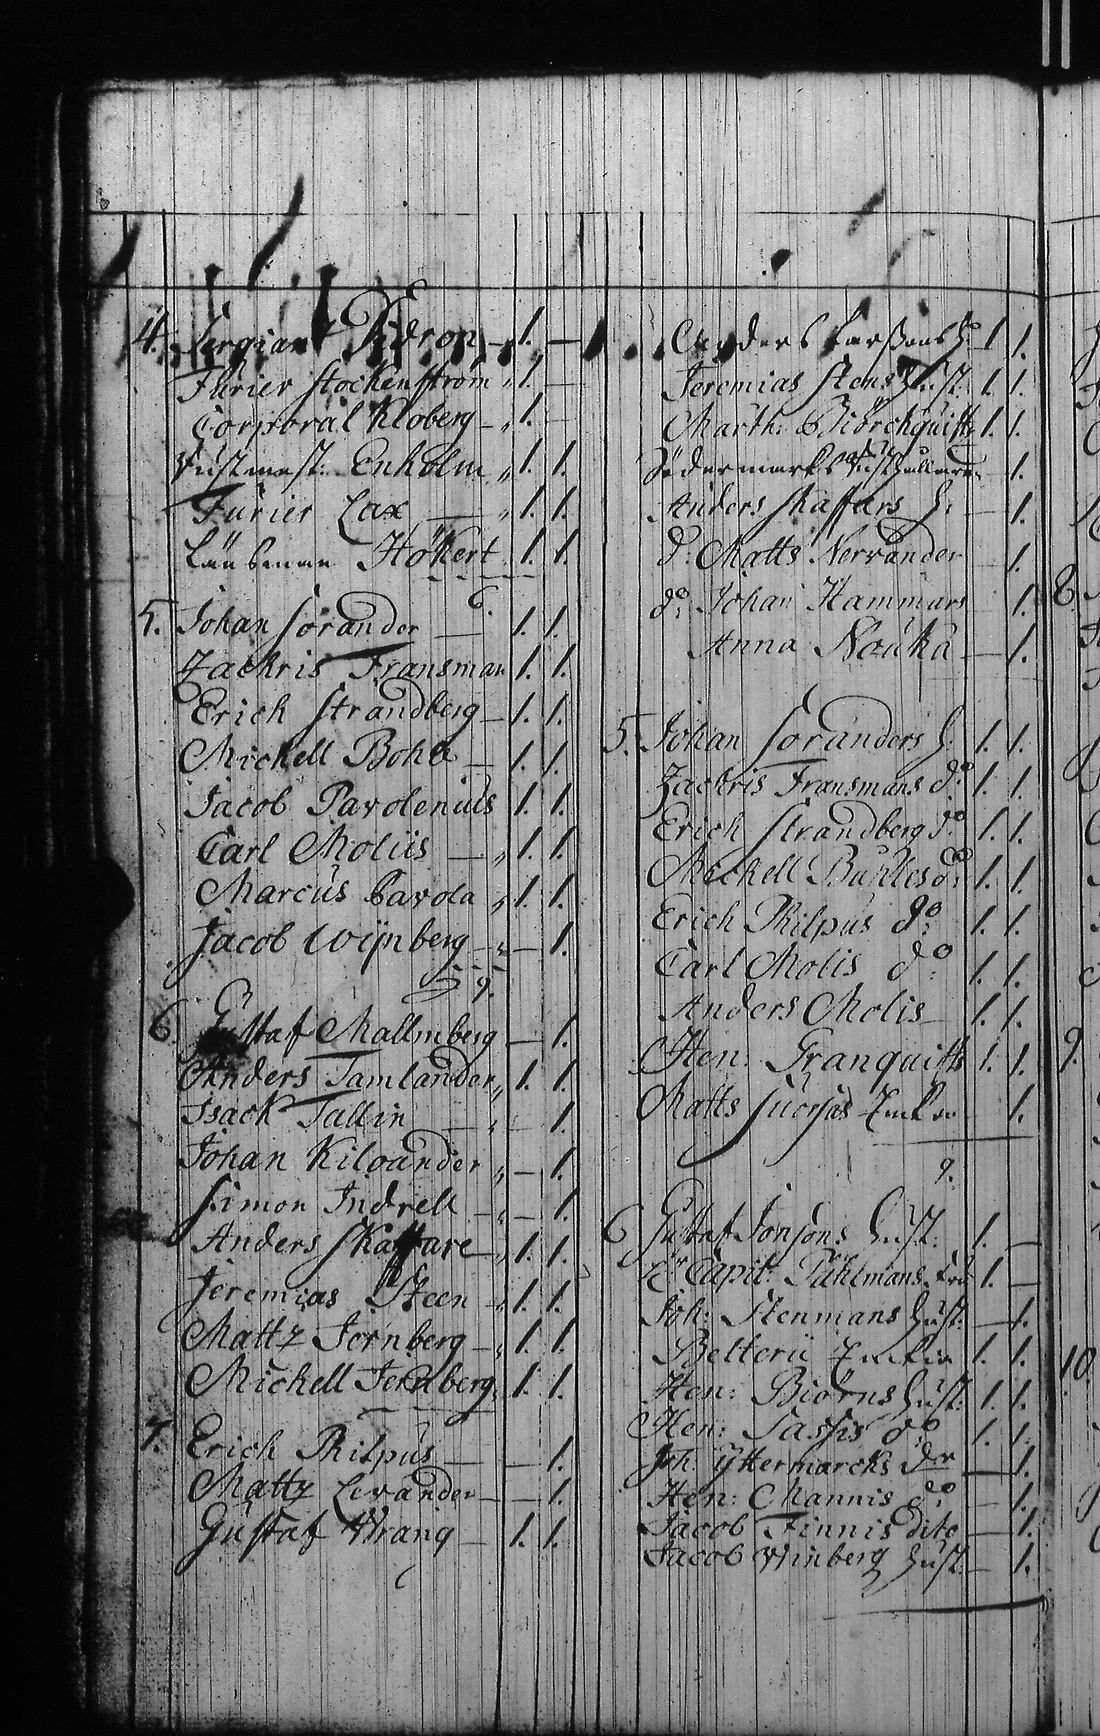 4. Sergiant Kidron — 1. —
Furier Stockenström „ 1. —
Corporal Kloberg — „ 1. —
Rustmest: Enholm „ 1. 1.
Furier Lax — „ 1. 1.
Länsman Hökert 1. 1.
6.
5. Johan Sorander — 1. 1.
Zachris Fransman 1. 1.
Erich Strandberg — 1. 1.
Mickell Bohle — 1. 1.
Jacob Pavolenius 1. 1.
Carl Moliis — „ 1. 1.
Marcus Pavola „ 1. 1.
Jacob Wijnberg — „ — 1.
9.
6. Gustaf Mallmberg — 1.
Anders Tamlander „ 1. 1.
Isack Tallin — „ — 1.
Johan Kiloander „ — 1.
Simon Indrell — „ — 1.
Anders Skaffare — „ 1. 1.
Jeremias Steen — „ 1. 1.
Mattz Jernberg — „ 1. 1.
Mickell Jernberg „ 1. 1.
7. Erich Philpus — — 1.
Mattz Levander — — 1.
Gustaf Wrang — 1. 1.
Anders Larssons h: 1. 1.
Jeremias Stens Hust: 1. 1.
Marth: Biörckquists 1. 1.
Södermarks — 1.
Anders Skaffars h: — 1.
d: Matts Nervander — 1.
do: Johan Hammars — 1.
Anna Nauka — 1.
5. Johan Soranders h: 1. 1.
Zachris Fransmans do 1. 1.
Erich Strandberg do 1. 1.
Mickell Buhles do: 1. 1.
Erich Philpus do: 1. 1.
Carl Molis do: 1. 1.
Anders Molis — 1. 1.
Hen: Granquists 1. 1.
Matts Enka 1.
9.
6. Gustaf Jonsons Hust: 1. —
Capit: Påhlmans 1. —
Joh: Stenmans Hust: — 1.
Belterii Enkia 1. 1.
Hen: Biörns Hust: 1. 1.
Hen: Tassis do 1. 1.
Joh: Yttermarcks dr — 1.
Hen: Mannis do: — 1.
Jacob Finnis dito — 1.
Jacob Winberg Hust: — 1.
8.
9.
10.